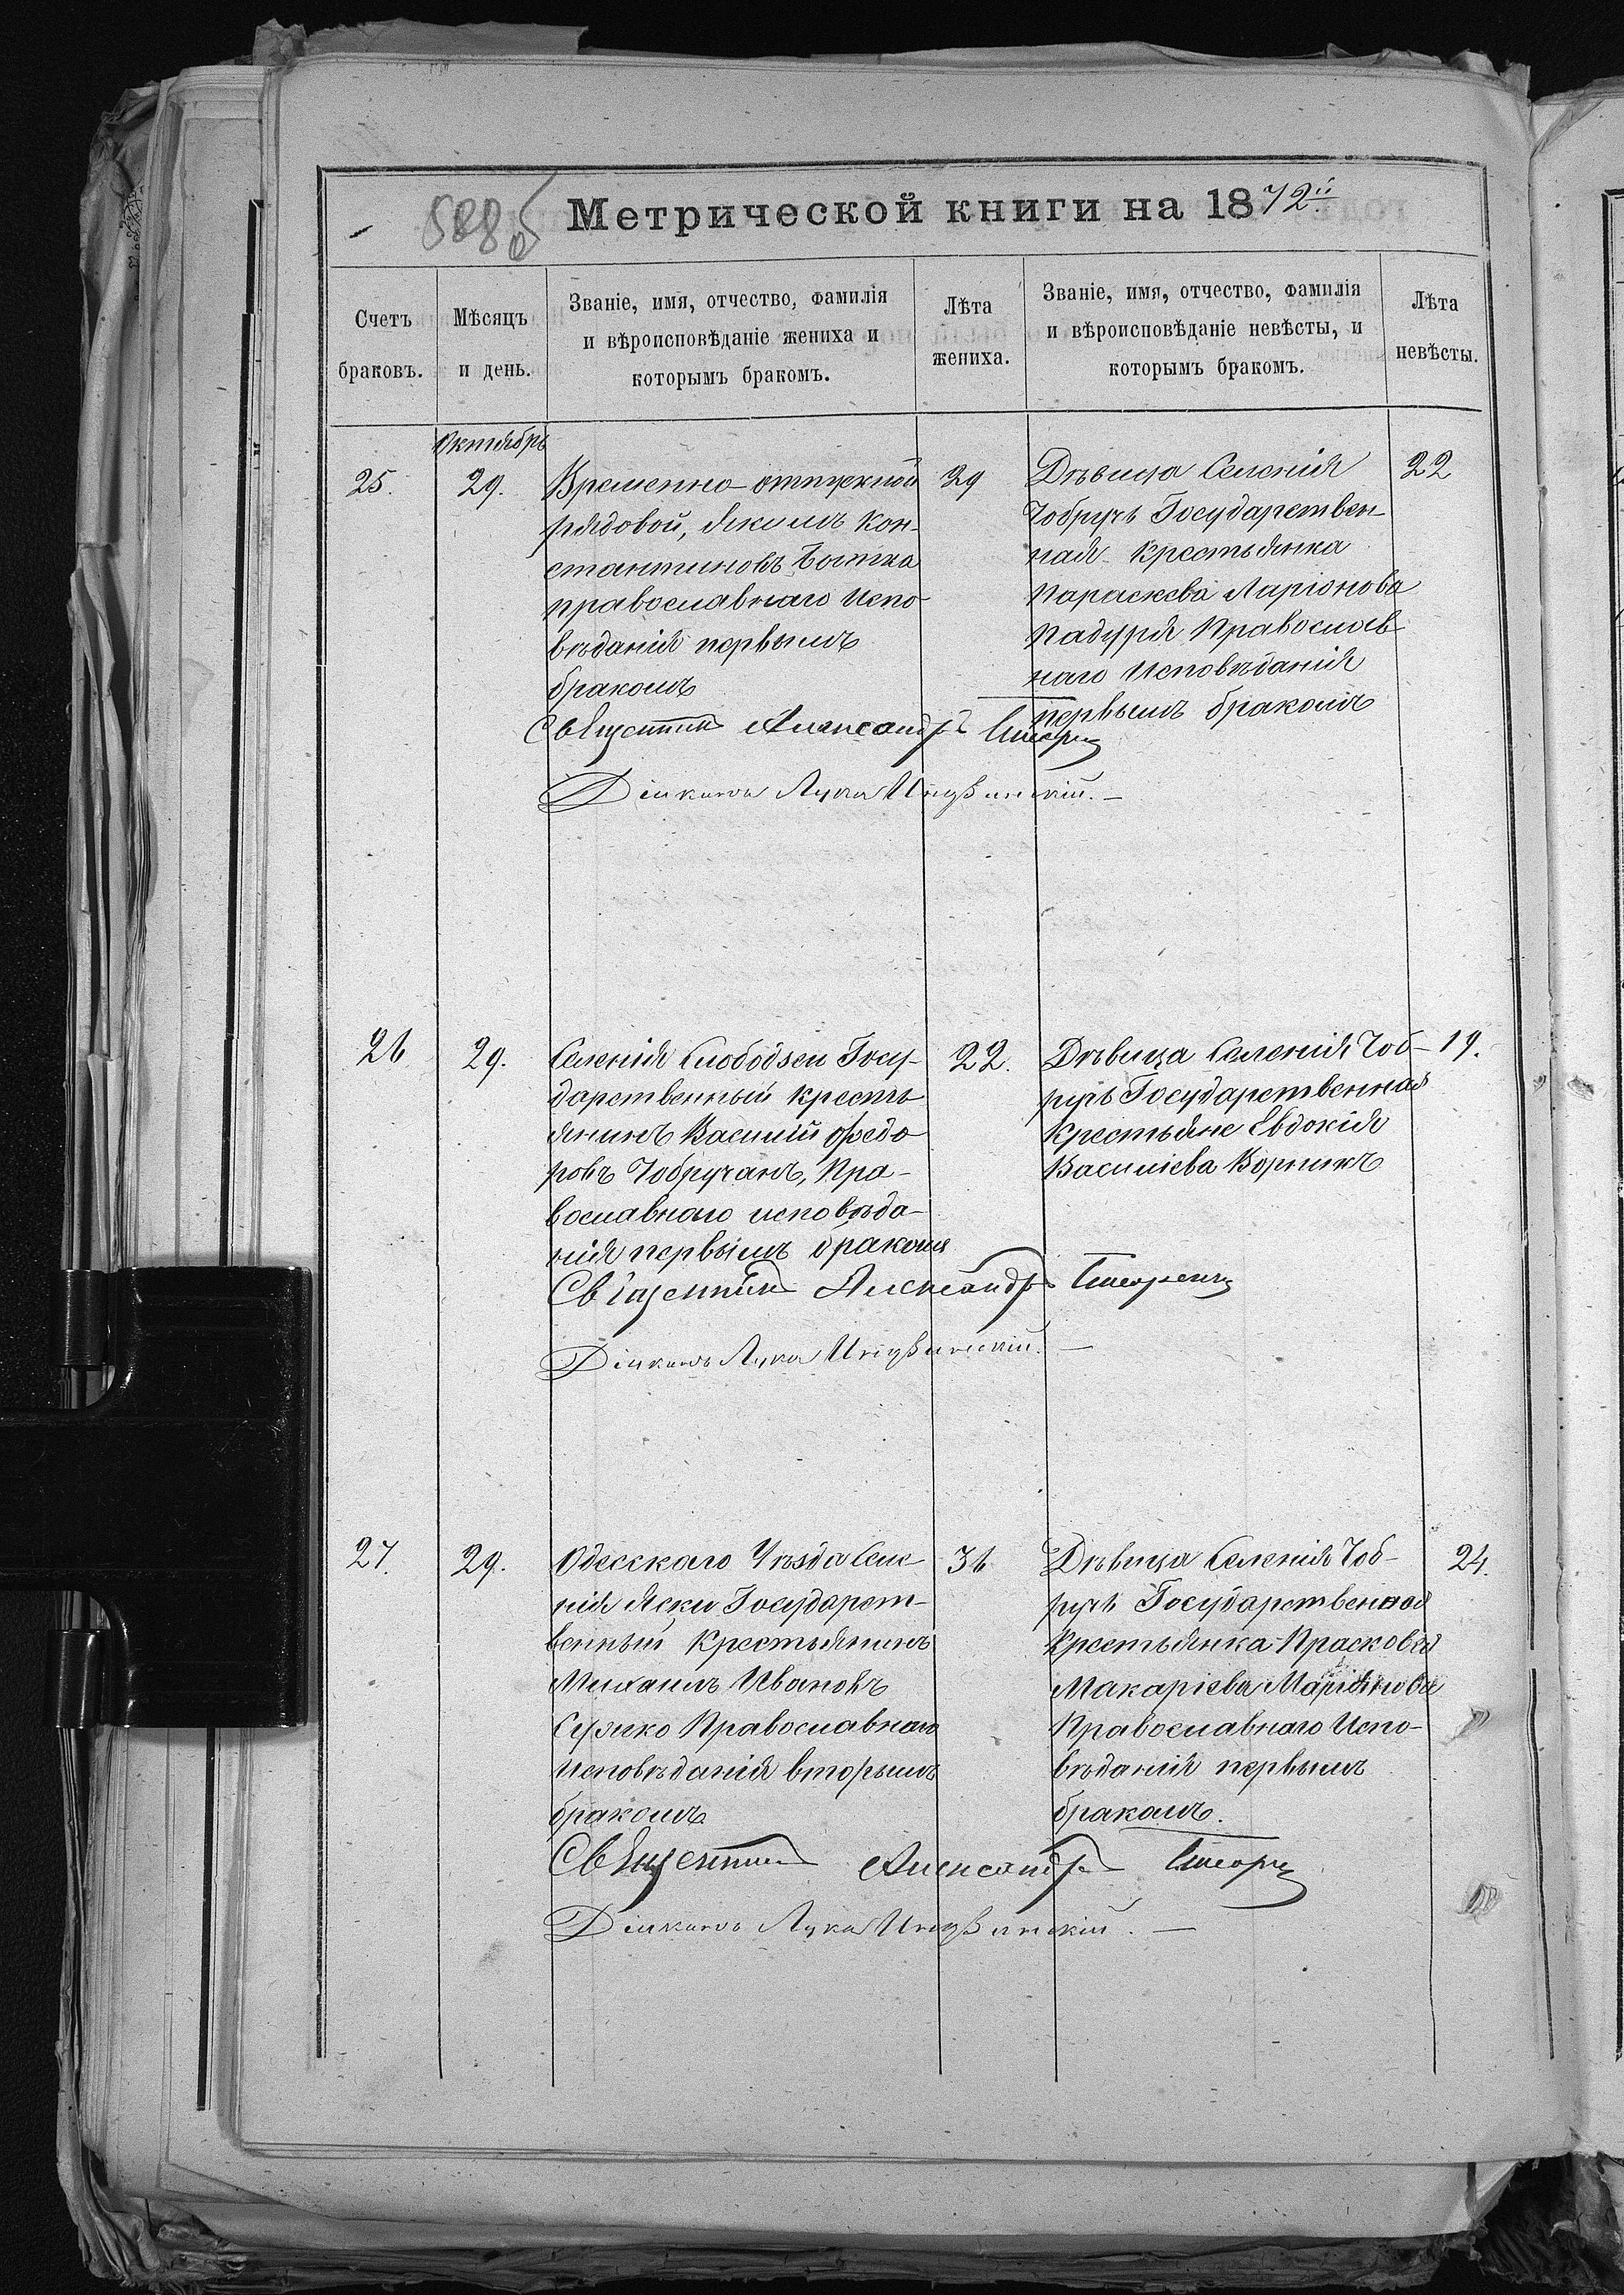 588 об
Метрической книги на 1872й
Счетъ браковъ.
Мѣсяцъ и день.
Званіе, имя, отчество, фамилія
и вѣроисповѣданіе жениха и
которымъ бракомъ.
Лѣта жениха.
Званіе, имя, отчество, фамилія
и вѣроисповѣданіе невѣсты, и
которымъ бракомъ.
Лѣта невѣсты.
Октябрь
25.
29.
Временно-отпускной
рядовой, Якимъ Кон-
стантиновъ
православнаго испо-
вѣданія первымъ
бракомъ
29
Дѣвица Селенія
Чобручъ Государствен-
ная крестьянка
Параскева Ларіонова
Падуря Православ-
наго Исповѣданія
первымъ бракомъ
22
Священникъ Александръ
Діаконъ Лука
26
29.
Селенія Слободзеи Госу-
дарственный кресть-
янинъ Василій Ѳедо-
ровъ Чобручанъ, Пра-
вославнаго исповѣда-
нія первымъ бракомъ
22.
Дѣвица Селенія Чоб-
ручъ Государственная
Крестьяне Евдокія
Василіева Ворникъ
19.
Священникъ Александръ
Діаконъ Лука
27.
29.
Одесскаго Уѣзда Селе-
нія Яски Государст-
венный Крестьянинъ
Михаилъ Ивановъ
Сузико Православнаго
Исповѣданія вторымъ
бракомъ
36
Дѣвица Селенія Чоб-
ручъ Государственная
Крестьянка Прасковія
Макаріева
Православнаго Испо-
вѣданія первымъ
бракомъ.
24.
Священникъ Александръ
Діаконъ Лука